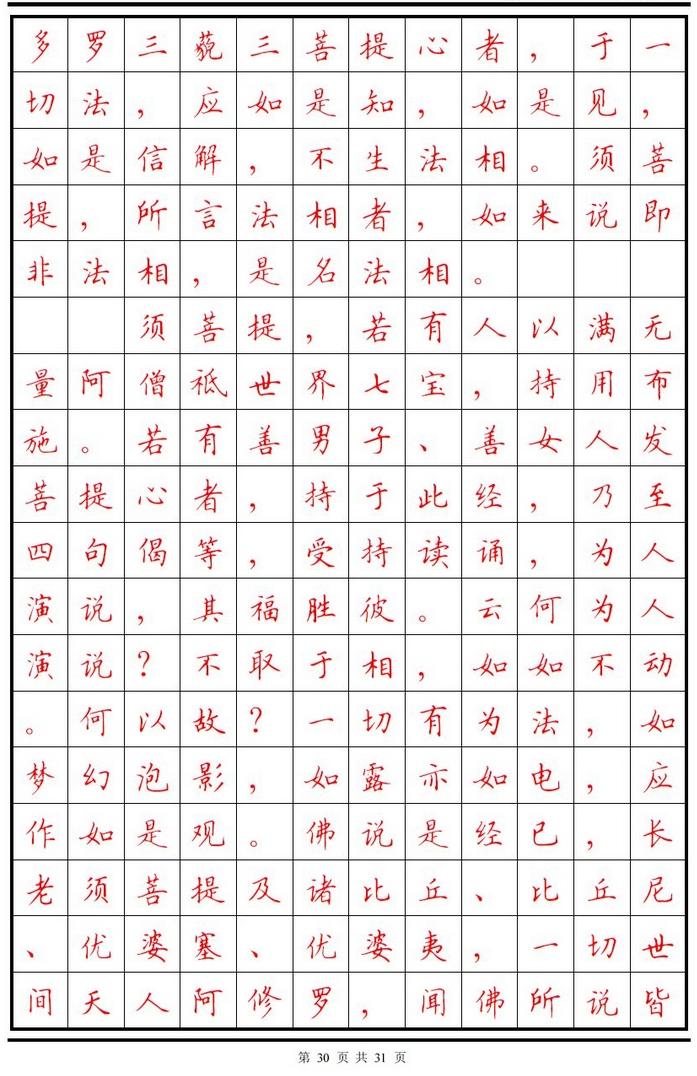 多罗三藐三菩提心者，于一
切法，应如是知，如是见，
如是信解，不生法相。须菩
提，所言法相者，如来说即
非法相，是名法相。
须菩提，若有人以满无
量阿僧祇世界七宝，持用布
施。若有善男子、善女人发
菩提心者，持于此经，乃至
四句偈等，受持读诵，为人
演说，其福胜彼。云何为人
演说？不取于相，如如不动
。何以故？一切有为法，如
梦幻泡影，如露亦如电，应
作如是观。佛说是经已，长
老须菩提及诸比丘、比丘尼
、优婆塞、优婆夷，一切世
间天人阿修罗，闻佛所说皆
第 30 页 共 31 页